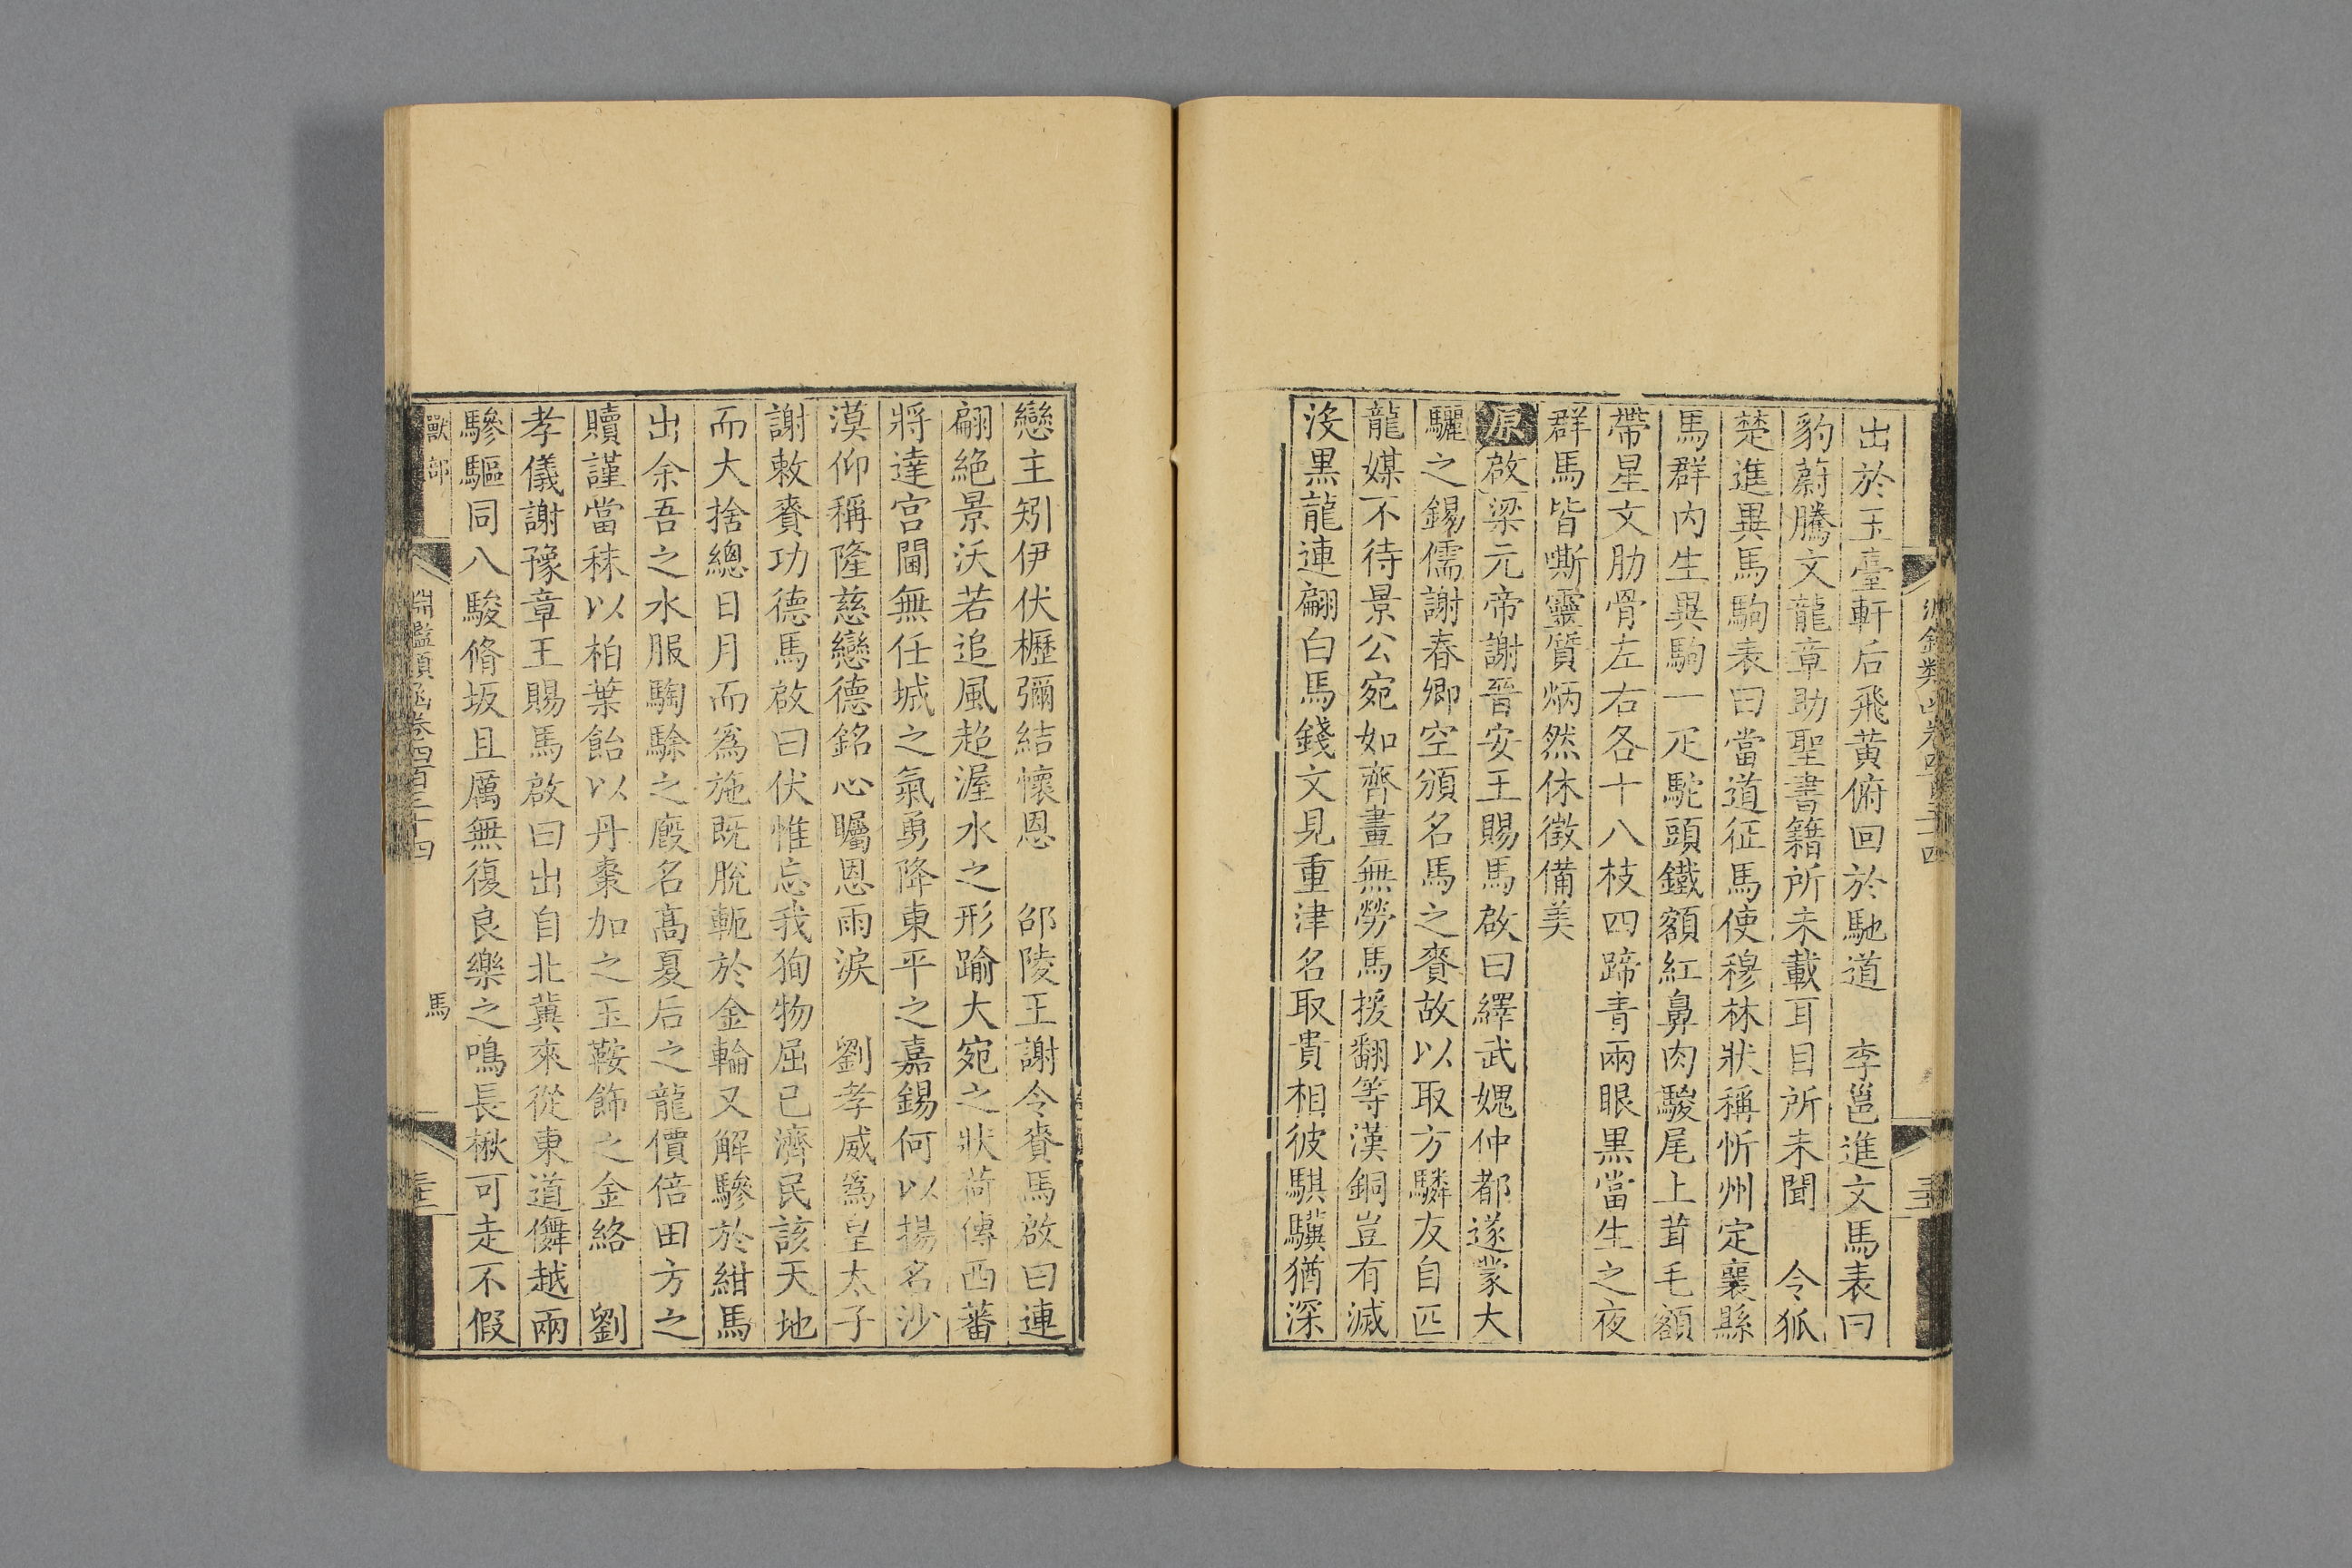 出於玉臺軒后飛黃俯回於馳道　李邕進文馬表曰
豹蔚騰文龍章助聖書籍所未載耳目所未聞　令狐
楚進異馬駒表曰當道征馬使穆林狀稱忻州定襄縣
馬群內生異駒一疋駝頭鐵額紅鼻肉駿尾上茸毛額
帶星文肋骨左右各十八枝四蹄青兩眼黑當生之夜
群馬皆嘶靈質炳然休徵備美
原啟梁元帝謝晉安王賜馬啟曰繹武媿仲都遂蒙大
驪之錫儒謝春卿空頒名馬之賚故以取方驎友自匹
龍媒不待景公宛如齊畫無勞馬援翻等漢銅豈有滅
沒黑龍連翩白馬錢文見重津名取貴相彼騏驥猶深
戀主矧伊伏櫪彌結懷恩　邵陵王謝令賚馬啟曰連
翩絕景沃若追風超渥水之形踰大宛之狀荷傳西蕃
將達宮閫無任城之氣勇降東平之嘉錫何以揚名沙
漠仰稱隆慈戀德銘心矚恩雨淚　劉孝威爲皇太子
謝敕賚功德馬啟曰伏惟忘我狥物屈已濟民該天地
而大捨總日月而爲施既脫軛於金輪又解驂於紺馬
出余吾之水服騊駼之廄名髙夏后之龍價倍田方之
贖謹當秣以柏葉飴以丹棗加之玉鞍飾之金絡　劉
孝儀謝豫章王賜馬啟曰出自北冀來從東道儛越兩
驂驅同八駿脩坂且厲無復良樂之鳴長楸可走不假
獸部　淵鑑類函卷四百三十四　馬